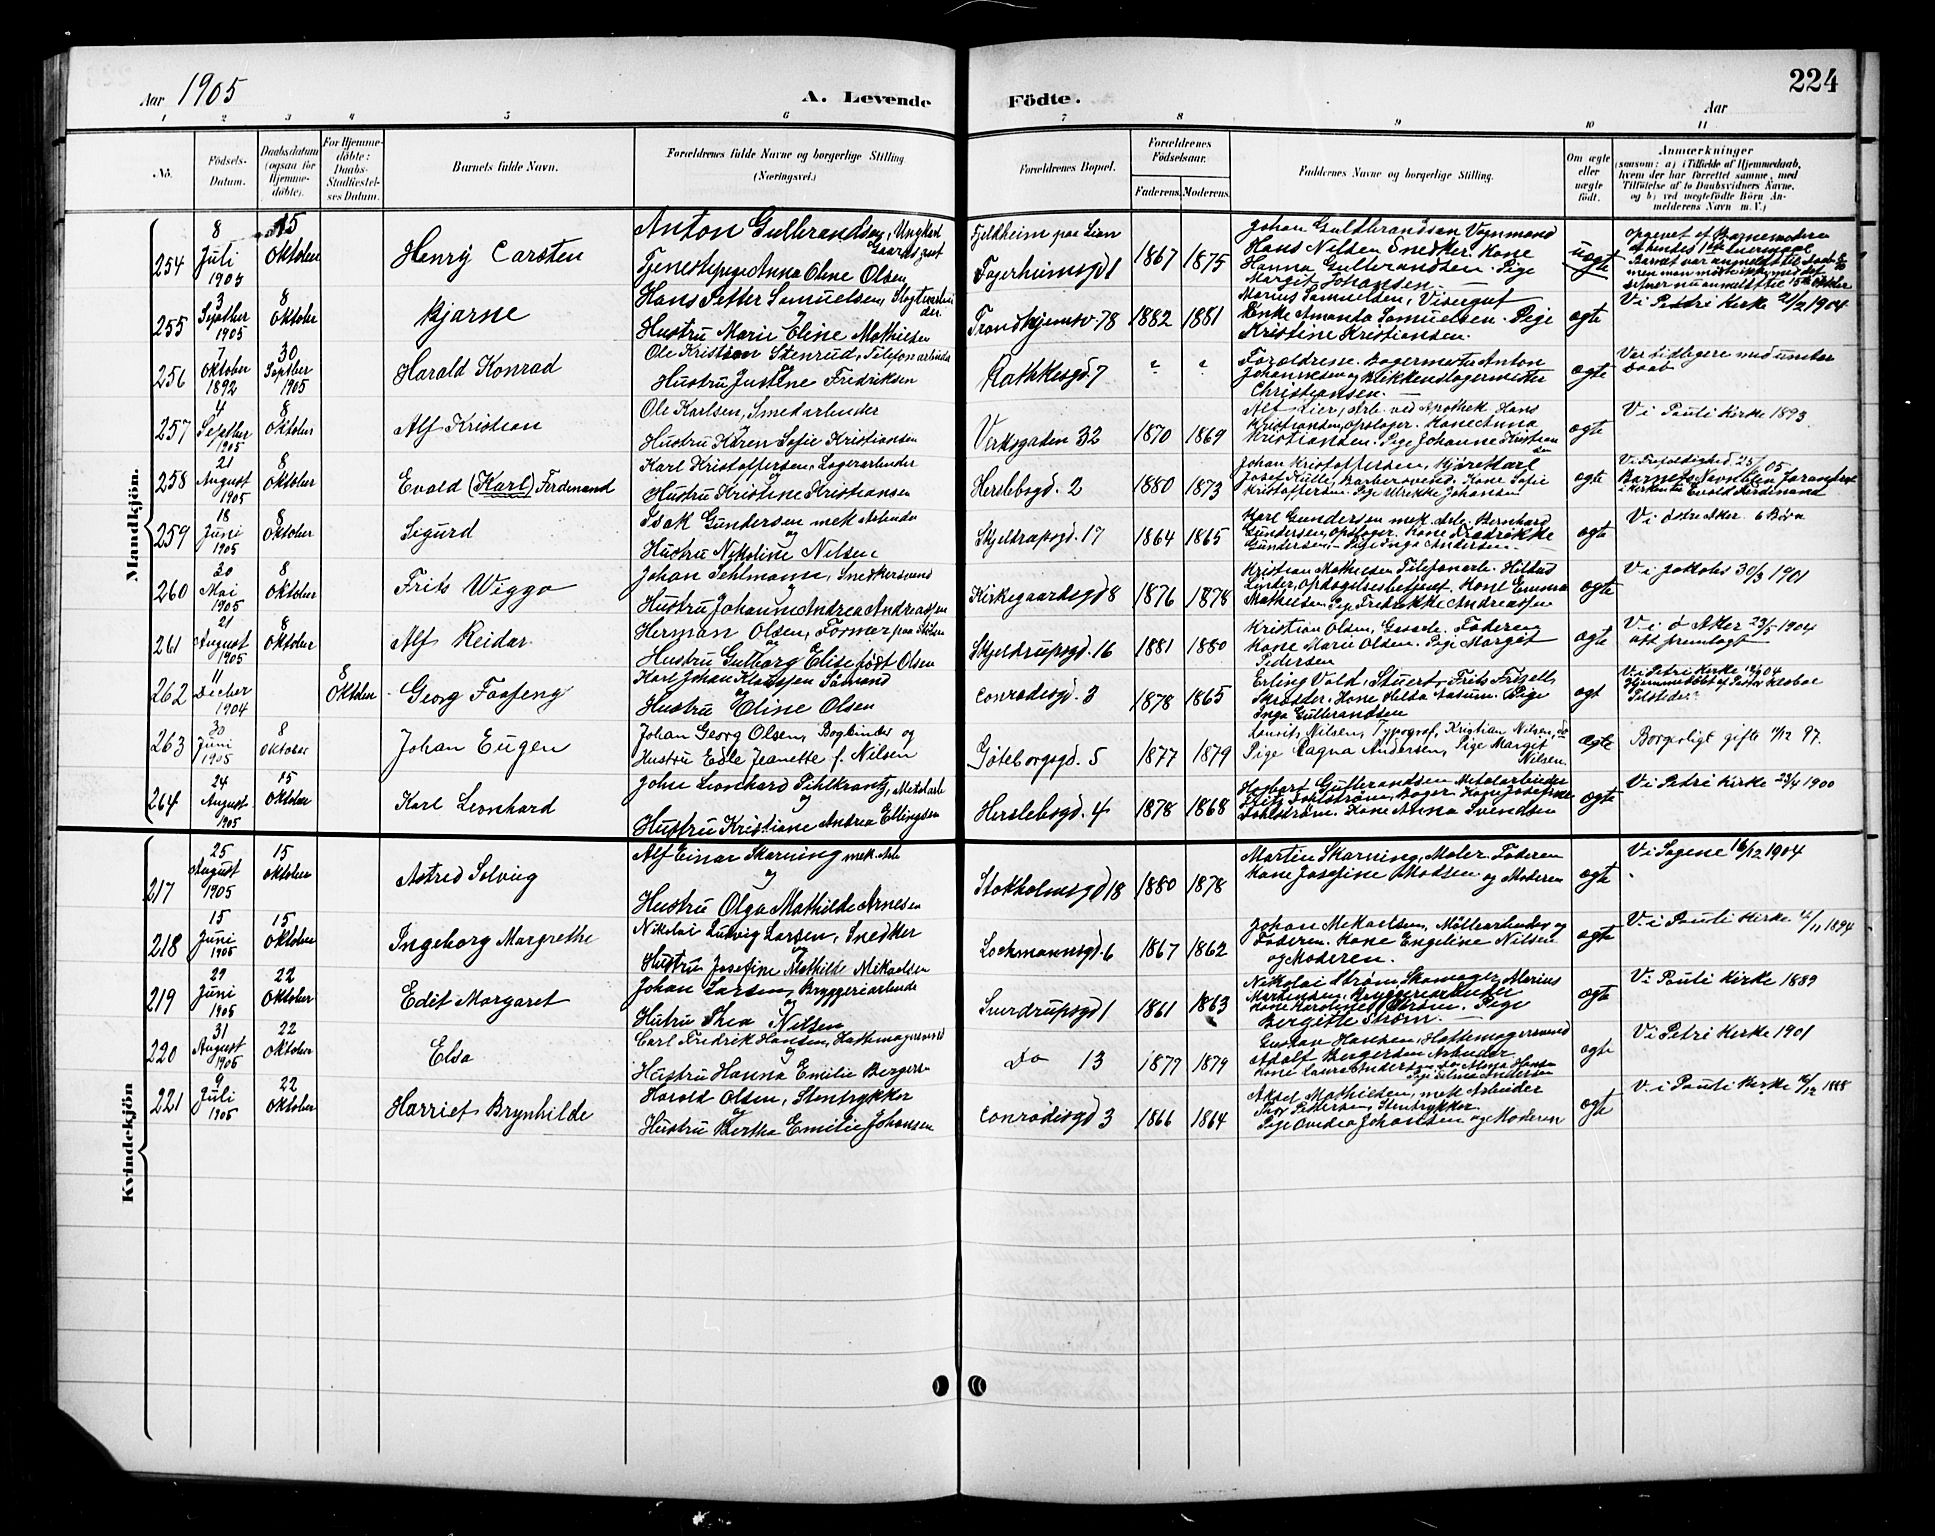 Aar 1905
A. Levende
Födte.
Aar
224
1 2 3 4 5 6 7 8 9 10 11
No.
Födsels-
Datum.
Daabsdatum
(ogsaa for
Hjemme-
døbte).
For Hjemme-
døbte:
Daabs-
Stadfæstel-
ses Datum.
Barnets fulde Navn.
Forældrenes fulde Navne og borgerlige Stilling
(Næringsvei.)
Forældrenes Bopæl.
Forældrenes
Födselsaar.
Faderens. Moderens.
Faddernes Navne og borgerlige Stilling.
Om ægte
eller
uægte
født.
Anmærkninger
(saasom: a) i Tilfælde af Hjemmedaab,
hvem der har forrettet samme, med
Tilföielse af to Daabsvidners Navne,
og b) ved uægtefödte Börn An-
melderens Navn m. V.)
Mandkjön.
254
8
Juli
1905
15
Oktober
Henry Carsten
Anton Gulbrandsen, Ungkarl
Gaardsgut
Tjenestepige Anna Oline Olsen
Fjeldheim paa Lian
Fagerheimsgd 1
1867 1875
Johan Guldbrandsen Vognmand
Hans Nilsen Snedker. Kone
Hanna Gulbrandsen. Pige
Margit Johansen
uægte
opgivet af Barnemoderen
255
3
Septber
1905
8
Oktober
Bjarne
Hans Petter Samuelsen, Slagteriarbei
der.
Hustru Marie Eline Mathilsen
Trondhjemsv 78
1882 1881
Marius Samuelsen, Visergut
Enke Amanda Samuelsen. Pige
Kristine Kristiansen.
ægte
Vi Petri Kirke 21/2 1904
256
7
Oktober
1892
30
Septber
1905
Harald Konrad
Ole Kristian Stenrud, Telefonarbeider
Hustru Justine Fredriksen
Rathkesgd 7
" "
Forældrene. Bagermester Anton
Johannesen og Blikkenslagermester
Christiansen.
ægte
Var tidligere med undtar
Daab
257
4
Septber
1905
8
Oktober
Alf Kristian
Ole Karlsen, Smedarbeider
Hustru Karen Sofie Kristiansen
Verksgaden 32
1870 1869
Alf Lier, Arb. ved Apothek. Hans
Kristiansen, Opslager. Kone Anna
Kristiansen. Pige Johanne Kristian
sen
ægte
Vi Pauli Kirke 1893
258
21
August
1905
8
Oktober
Evald (Karl) Ferdinand
Karl Kristoffersen, Lagerarbeider
Hustru Kristine Kristiansen
Herslebsgd. 2
1880 1873
Johan Kristoffersen, Kjørekarl
Josef Kulle, Barbersvend. Kone Sofie
Kristoffersen. Pige Ulrikke Johansen
ægte
Vi Trefoldighed 25/ 05
Barnets Navn blev forandret
i Kirken til Evald Ferdinand
259
18
Juni
1905
8
Oktober
Sigurd
Isak Gundersen mek Arbeider
og
Hustru Nikoline Nilsen
Skjeldrupsgd. 17
1864 1865
Karl Gundersen mek. Arb. Bernhard
Gundersen, Opslager. Kone Fredrikke
Gundersen. Pige Inga Andersen
ægte
Vi østre Aker 6 Børn
260
30
Mai
1905
8
Oktober
Frits Wiggo
Johan Sehlmann, Snedkersvend
Hustru Johanne Andrea Andreassen
Kirkegaardsgd 8
1876 1878
Kristian Mathiesen Telefonarb. Hilstad
Linder, Opdagelsesbetjent. Kone Emma
Mathisen. Pige Fredrikke Andreassen
ægte
Vi Jakobs 30/3 1901
261
21
August
1905
8
Oktober
Alf Reidar
Herman Olsen, Former paa Støberi
og
Hustru Gulborg Elise født Olsen
Skjeldrupsgd. 16
1881 1880
Kristian Olsen, Gassarb. Faderen
Kone Marie Olsen. Pige Margit
Pedersen
ægte
Vi ø Aker 23/5 1904
att fremlagt
262
11
Decber
1904
8
Oktober
Georg Foosseng
Karl Johan Klaussen Sømand
og
Hustru Eline Olsen
Conradisgd. 3
1878 1865
Erling Vold, Stuert. Frits Frizell
Skrædder. Kone Hilda Aasum. Pige
Inga Gulbrandsen
ægt
Vi Petri Kirke 12/ 04
Hjemmedøbt af Pastor Klaboe
Pilstedet
263
30
Juni
1905
8
Oktober
Johan Eugen
Johan Georg Olsen, Bogbinder og
Hustru Edle Jeanette f. Nilsen
Göteborgsgd. 5
1877 1879
Lauritz Nilsen, Typograf, Kristian Nilsen, do
Pige Ragna Andersen, Pige Margit
Nilsen
ægte
Borgerligt gifte 11/12 97.
264
24
August
1905
15
Oktober
Karl Leonhard
John Leonhard Pihlkrantz, Metalarb
og
Hustru Kristiane Andrea Ellingsen
Herslebsgd. 4
1878 1868
Hagbart Gulbrandsen Metalarbeider
Fritz Dahlstrøm, Bager. Kone Josefine
Dahlstrøm. Kone Anna Svendsen
ægte
Vi Petri Kirke 23/4 1900
Kvindekjön
217
25
August
1905
15
Oktober
Astrid Solveig
Alf Einar Skarning mek Arb
og
Hustru Olga Mathilde Arnesen
Stokholmsgd 18
1880 1878
Martin Skarning, Maler. Faderen
Kone Josefine Madsen og Moderen
ægte
Vi Sagene 16/12 1904
218
15
Juni
1905
15
Oktober
Ingeborg Margrethe
Nikolai Ludvig Larsen, Snedker
og
Hustru Josefine Mathilde Mikaelsen
Lockmannsgd. 6
1867 1862
Johan Mekaelsen, Møllearbeider og
Faderen. Kone Engeline Nilsen
og Moderen.
ægte
Vi Pauli Kirke 4/11 1894
219
29
Juni
1905
22
Oktober
Edit Margaret
Johan Larsen, Bryggeriarbeide
og
Hutru Thea Nilsen
Sverdrupsgd 1
1861 1863
Nikolai Strøm Skomager. Marius
Martinsen, Bryggeriarbeider
Kone Karoline Strøm. Pige
Bergitte Strøm.
ægte
Vi Pauli Kirke 1889
220
31
August
1905
22
Oktober
Elsa
Carl Fredrik Hansen, Hattemagersvend
og
Hustru Hanna Emilie Bergersen
Do 13
1877 1879
Gustav Hansen, Hattemagersvend
Adolf Bergersen Arbeider
Kone Laura Andersen. Do Alma Hansen
Pige Selma Andersen
ægte
Vi Petri Kirke 1901
221
9
Juli
1905
22
Oktober
Harriet Brynhilde
Harald Olsen, Stentrykker
og
Hustru Bertha Emilie Johansen
Conradisgd 3
1866 1864
Aksel Mathilsen, mek Arbeider
Thor Pettersen, Stentrykker
Pige Ovedia Johansen og Moderen
ægte
Vi Pauli Kirke 16/12 1888